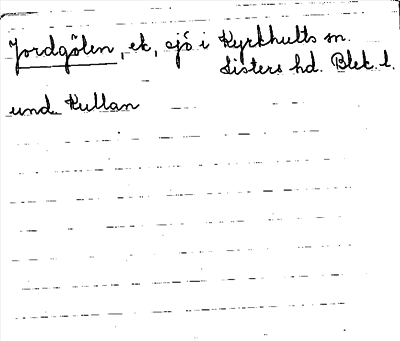 Jordgölen, ek, sjö i Kyrkhults sn.
Listers hd. Blek. l.
und. Kullan